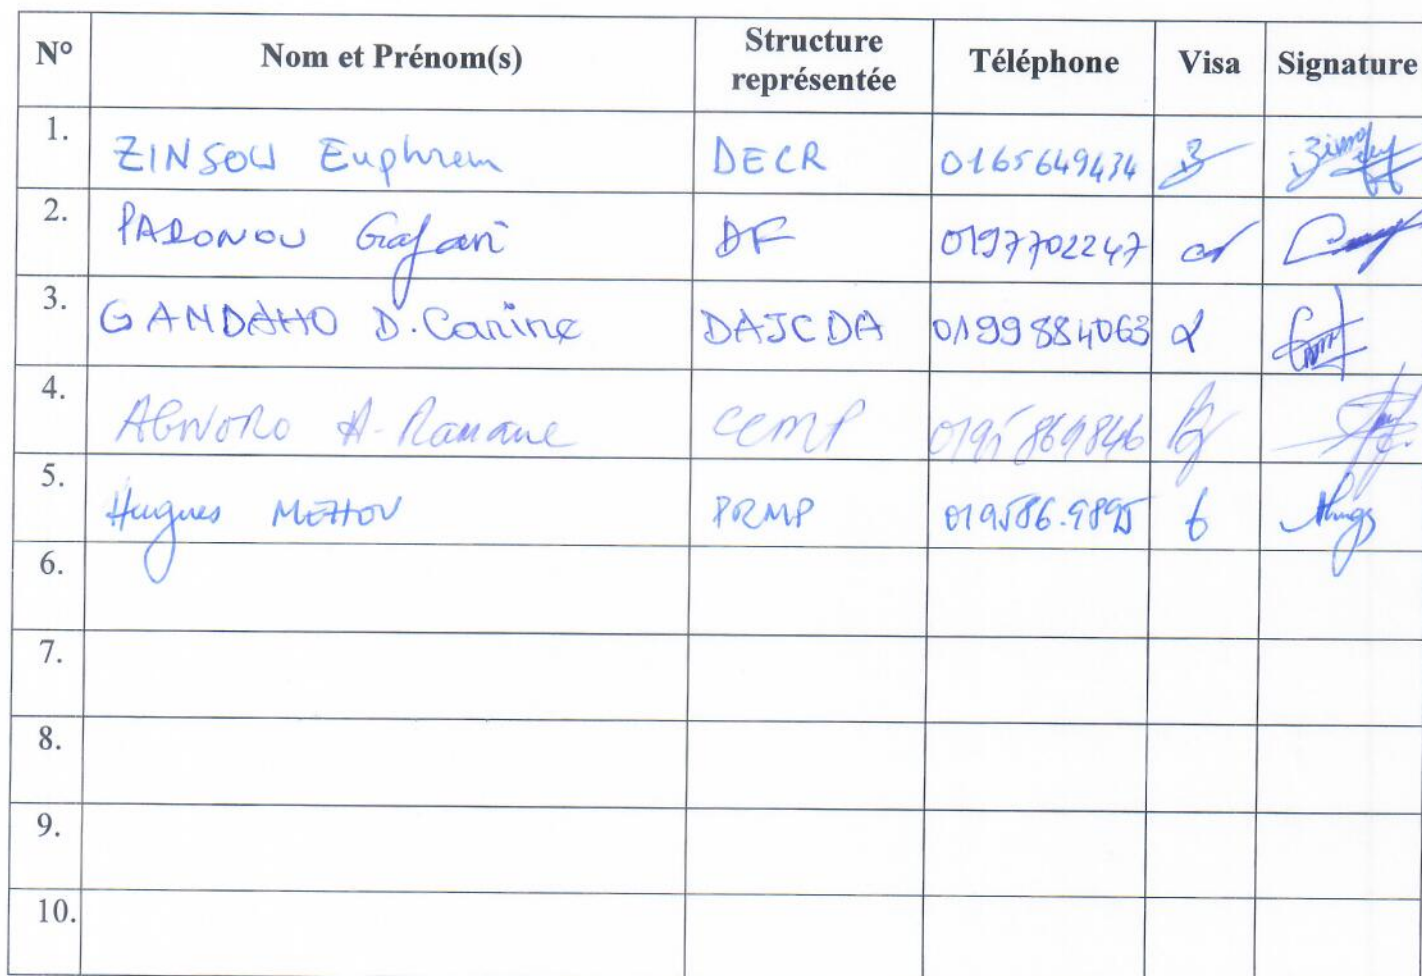 N° Nom et Prénom(s) Structure représentée Téléphone Visa Signature
1. ZINSOU Euphrem DECR 0165649434
2. PADONOU Gafari DF 0197702247
3. GANDAHO D. Carine DAJCDA 0199884063
4. A-Ramane CCMP 0195869846
5. Hugues MEHOU PRMP 019586.9895
6.
7.
8.
9.
10.